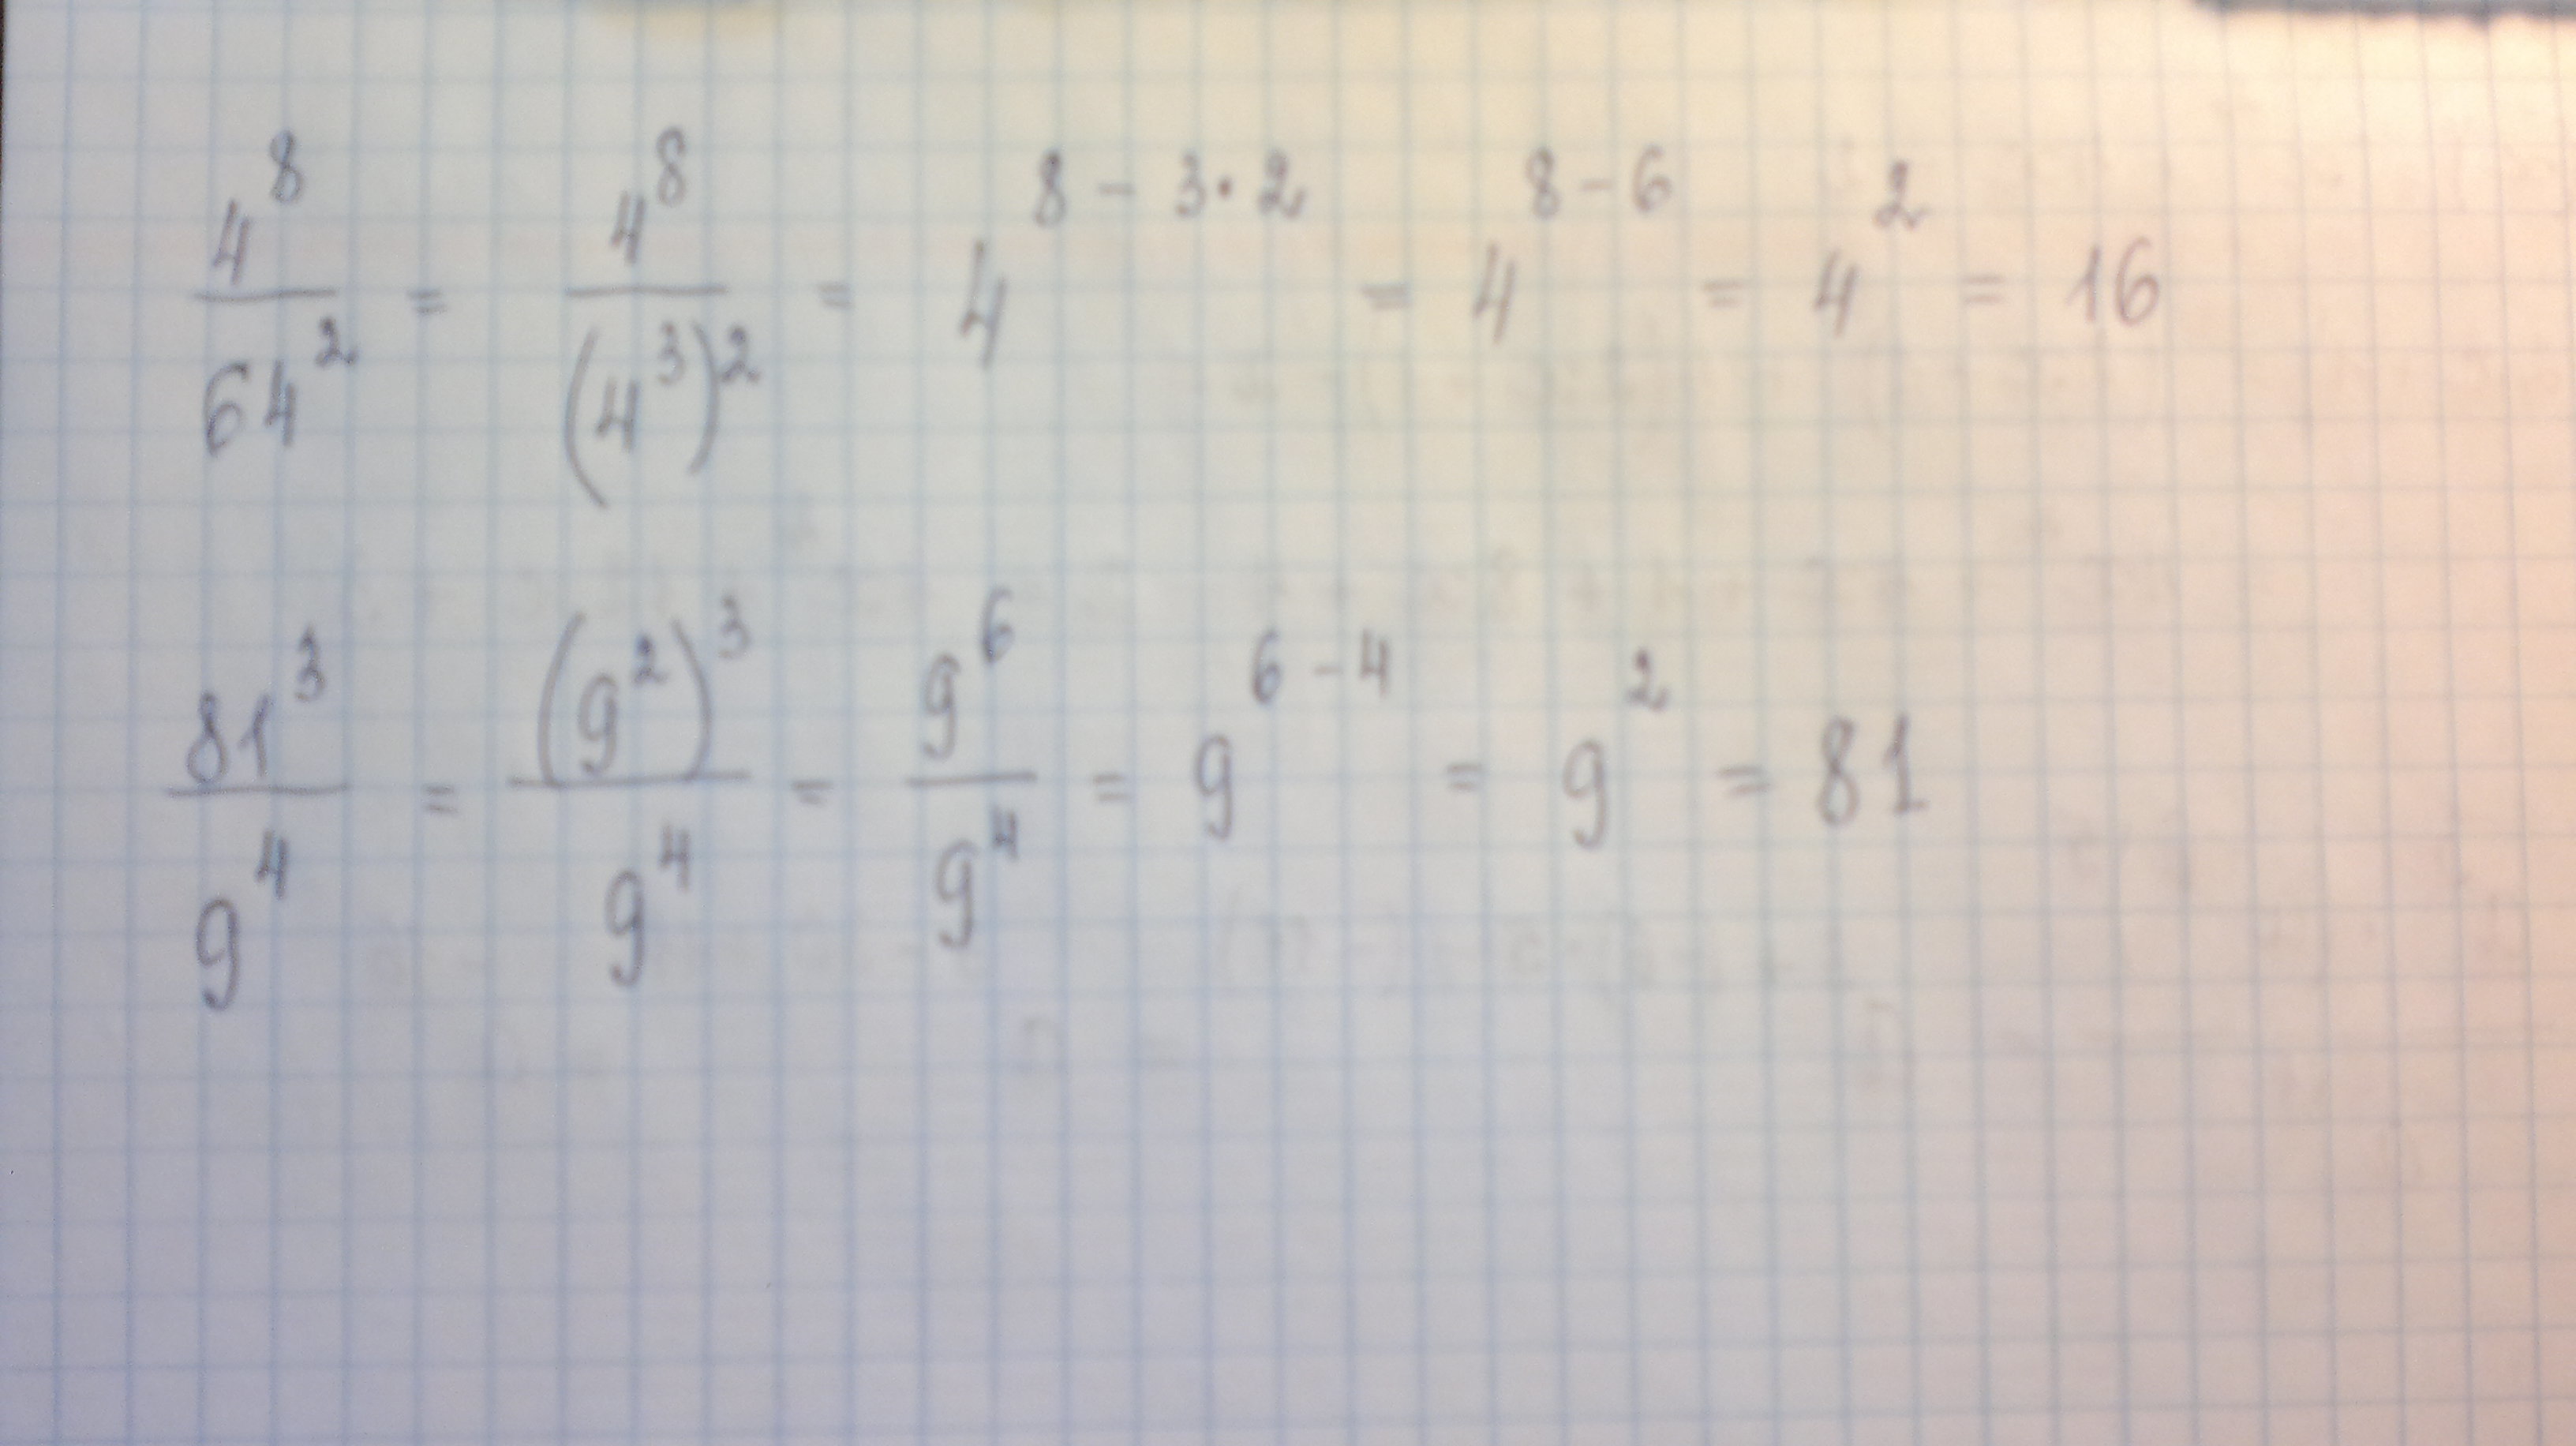 4^8/64^2 = 4^8/(4^3)^2 = 4^(8-3·2) = 4^(8-6) = 4^2 = 16
81^3/9^4 = (9^2)^3/9^4 = 9^6/9^4 = 9^(6-4) = 9^2 = 81